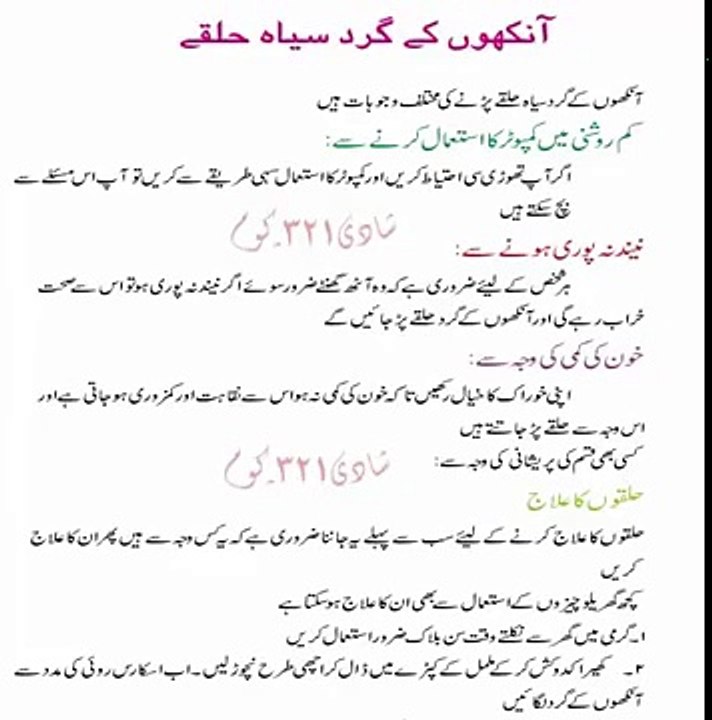 آنکھوں کے گرد سیاہ حلقے
آنکھوں کے گرد سیاہ حلقے پڑنے کی مختلف وجوہات ہیں
کم روشنی میں کمپوٹر کا استعمال کرنے سے:
اگر آپ تھوڑی سی احتیاط کریں اور کمپوٹر کا استعمال سہی طریقے سے کریں تو آپ اس مسئلے سے
بچ سکتے ہیں
شادی ۳۲۱۔کوم
نیند نہ پوری ہونے سے:
ہر شخص کے لیئے ضروری ہے کہ وہ آٹھ گھنٹے ضرور سوئے اگر نیند نہ پوری ہو تو اس سے صحت
خراب رہے گی اور آنکھوں کے گرد حلقے پڑ جائیں گے
خون کی کمی کی وجہ سے:
اپنی خوراک کا خیال رکھیں تا کہ خون کی کمی نہ ہو اس سے نقاہت اور کمزوری ہو جاتی ہے اور
اس وجہ سے حلقے پڑ جاتے ہیں
کسی بھی قسم کی پریشانی کی وجہ سے:
شادی ۳۲۱۔کوم
حلقوں کا علاج
حلقوں کا علاج کرنے کے لیئے سب سے پہلے یہ جاننا ضروری ہے کہ یہ کس وجہ سے ہیں پھر ان کا علاج
کریں
کچھ گھریلو چیزوں کے استعمال سے بھی ان کا علاج ہو سکتا ہے
۱۔گرمی میں گھر سے نکلتے وقت سن بلاک ضرور استعمال کریں
۲۔ کھیرا کدوکش کر کے ململ کے کپڑے میں ڈال کر اچھی طرح نچوڑ لیں۔اب اسکا رس روئی کی مدد سے
آنکھوں کے گرد لگائیں